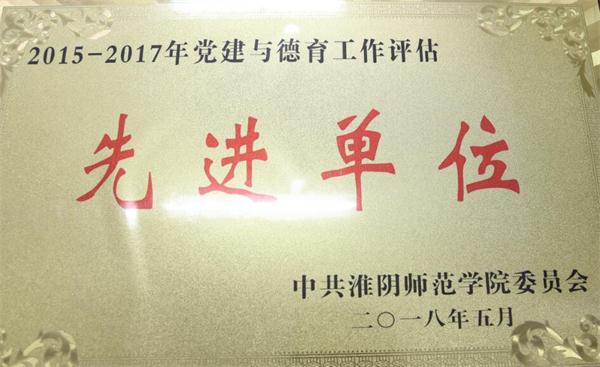 2015-2017年党建与德育工作评估
先进单位
中共淮阴师范学院委员会
二〇一八年五月